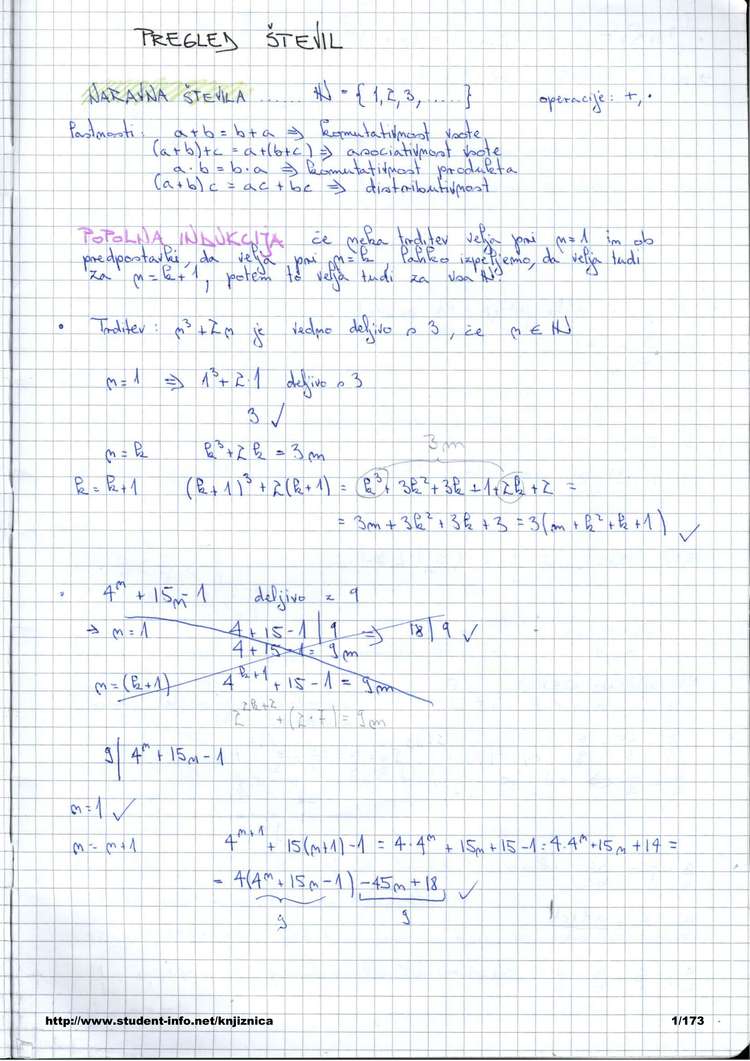 PREGLED ŠTEVIL
NARAVNA ŠTEVILA ...... ℕ = {1,2,3,.....} operacije: +, ·
Lastnosti: a+b = b+a ⇒ komutativnost vsote
(a+b)+c = a+(b+c) ⇒ asociativnost vsote
a·b = b·a ⇒ komutativnost produkta
(a+b)c = ac + bc ⇒ distributivnost
POPOLNA INDUKCIJA če neka trditev velja pri n=1 in ob
predpostavki, da velja pri n=k, lahko izpeljemo, da velja tudi
za n=k+1, potem to velja tudi za vsa ℕ.
• Trditev: n³+2n je vedno deljivo s 3, če n ∈ ℕ
n=1 ⇒ 1³+2·1 deljivo s 3
3 ✓
3m
n=k k³+2k = 3m
k=k+1 (k+1)³+2(k+1) = k³+3k²+3k+1+2k+2 =
= 3m+3k²+3k+3 = 3(m+k²+k+1) ✓
• 4ⁿ+15n-1 deljivo z 9
→ n=1 4+15-1 | 9 ⇒ 18|9 ✓
4+15-1 = 9m
n=(k+1) 4^(k+1)+15-1 = 9m
2^(2k+2)+(2·7) = 9m
9 | 4ⁿ+15n-1
n=1 ✓
n=n+1 4^(n+1) + 15(n+1)-1 = 4·4ⁿ+15n+15-1 = 4·4ⁿ+15n+14 =
= 4(4ⁿ+15n-1) -45n+18 ✓
9 9
http://www.student-info.net/knjiznica 1/173